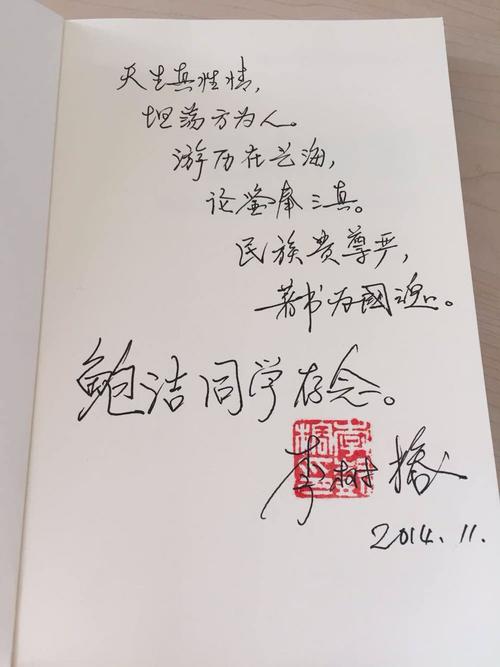 天生真性情，
坦荡方为人。
游历在艺海，
论鉴奉三真。
民族贵尊严，
著书为國魂。
鲍洁同学存念。
李树榕
2014.11.